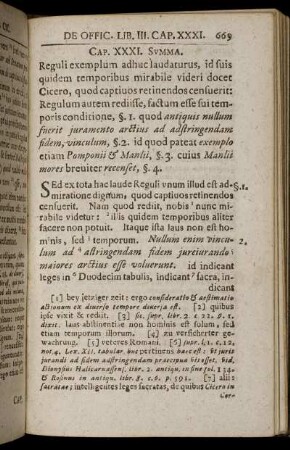 DE OFFIC. LIB. III. CAP. XXXI. 669
CAP. XXXI. SVMMA.
Reguli exemplum adhuc laudaturus, id suis
quidem temporibus mirabile videri docet
Cicero, quod captiuos retinendos censuerit:
Regulum autem rediisse, factum esse sui tem-
poris conditione, §. 1. quod antiquis nullum
fuerit juramento arctius ad adstringendam
fidem, vinculum, §. 2. id quod pateat exemplo
etiam Pomponii & Manlii, §. 3. cuius Manlii
mores breuiter recenset, §. 4.
SEd ex tota hac laude Reguli vnum illud est ad- §. 1.
miratione dignum, quod captiuos retinendos
censuit. Nam quod rediit, nobis nunc mi-
rabile videtur: illis quidem temporibus aliter
facere non potuit. Itaque ista laus non est ho-
minis, sed temporum. Nullum enim vincu- 2.
lum ad adstringendam fidem jureiurando
maiores arctius esse voluerunt. id indicant
leges in Duodecim tabulis, indicant sacra, in-
dicant
[1] bey jetziger zeit: ergo consideratio & aestimatio
actionum ex diuerso tempore diuersa est. [2] quibus
ipse vixit & rediit. [3] sic supr. libr. 2. c. 22. §. 1.
dixit. laus abstinentiae non hominis est solum, sed
etiam temporum illorum. [4] zu versicherter ge-
wachrung. [5] veteres Romani. [6] supr.
not. 4. Lex XII. tabular. quae pertinuit
jurandi ad fidem adstringendam praecipua
Dionysius Halicarnassensi, libr. 2. antiqu. in fine
& Rosinus in antiqu. libr. 8. c. 6. p. 591. [7] aliae
sacratae; intelligentes leges sacratas, de quibus Cicero in
Cor-